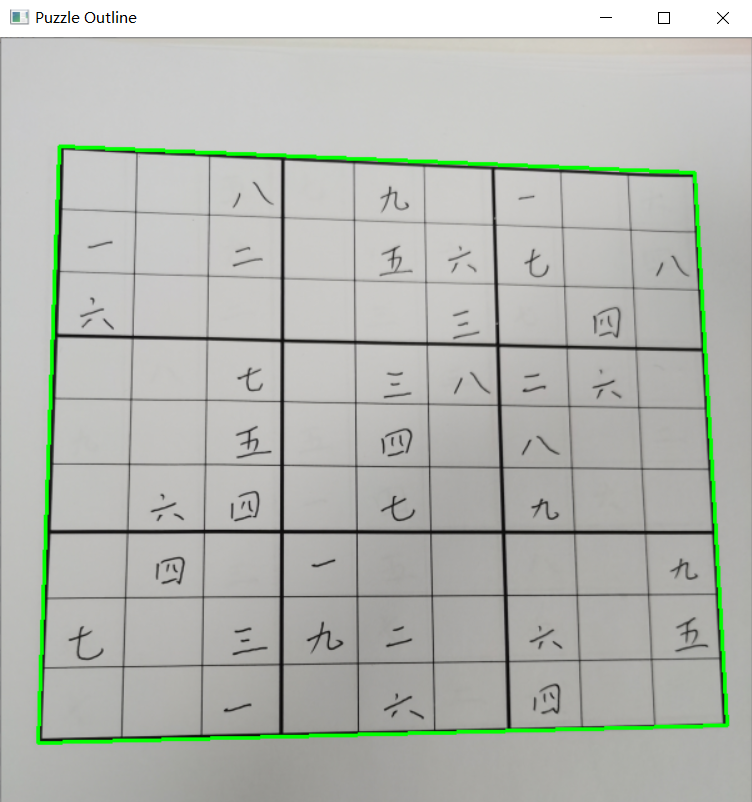 Puzzle Outline
八 九 一
一 二 五 六 七 八
六 三 四
七 三 八 二 六
五 四 八
六 四 七 九
四 一 九
七 三 九 二 六 五
一 六 四